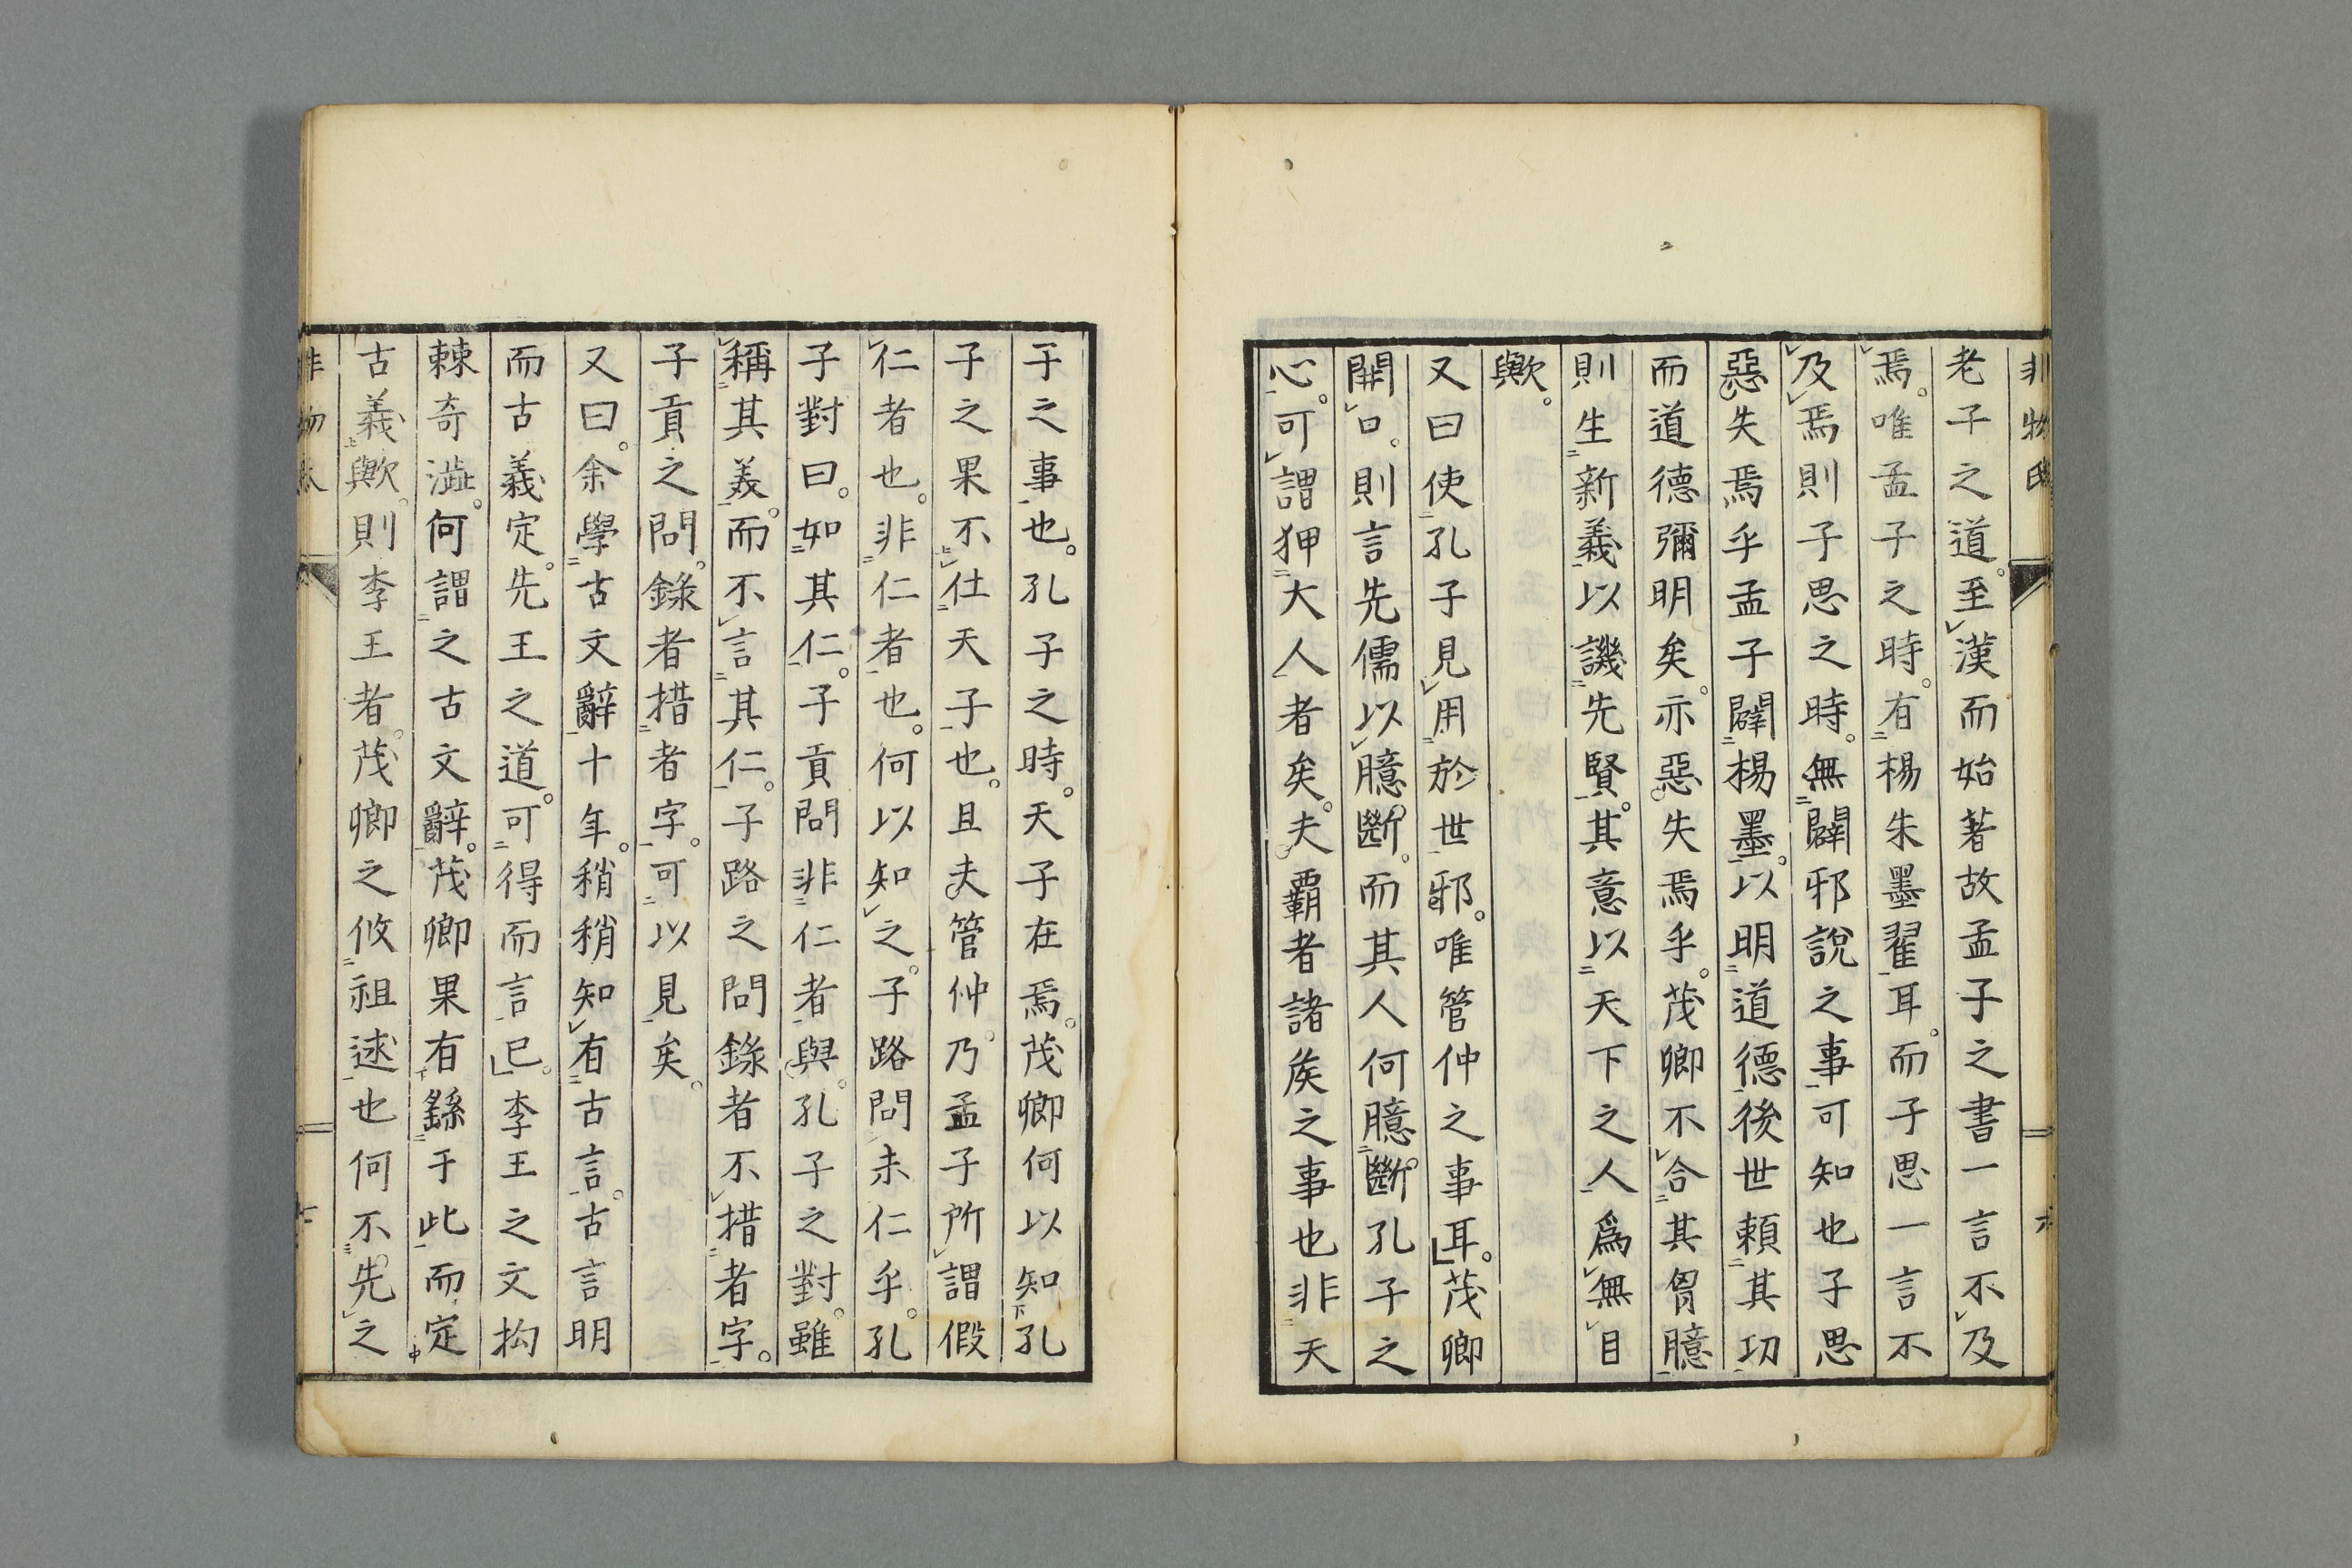 非物氏
老子之道。至漢而始著故孟子之書一言不及
焉。唯孟子之時。有楊朱墨翟耳。而子思一言不
及焉則子思之時。無闢邪說之事可知也子思
惡失焉乎孟子闢楊墨。以明道德後世賴其功
而道德彌明矣。亦惡失焉乎。茂卿不合其胷臆
則生新義以譏先賢。其意以天下之人爲無目
歟。
又曰使孔子見用於世邪。唯管仲之事耳。茂卿
開口。則言先儒以臆斷。而其人何臆斷。孔子之
心。可謂狎大人者矣。夫覇者諸矦之事也非天
子之事也。孔子之時。天子在焉。茂卿何以知孔
子之果不仕天子也。且夫管仲乃孟子所謂假
仁者也。非仁者也。何以知之。子路問未仁乎。孔
子對曰。如其仁。子貢問非仁者與。孔子之對。雖
稱其美。而不言其仁。子路之問錄者不措者字。
子貢之問。錄者措者字。可以見矣。
又曰。余學古文辭十年。稍稍知有古言。古言明
而古義定。先王之道。可得而言已。李王之文抅
棘奇澁。何謂之古文辭。茂卿果有繇于此而定
古義歟。則李王者。茂卿之攸祖述也何不先之